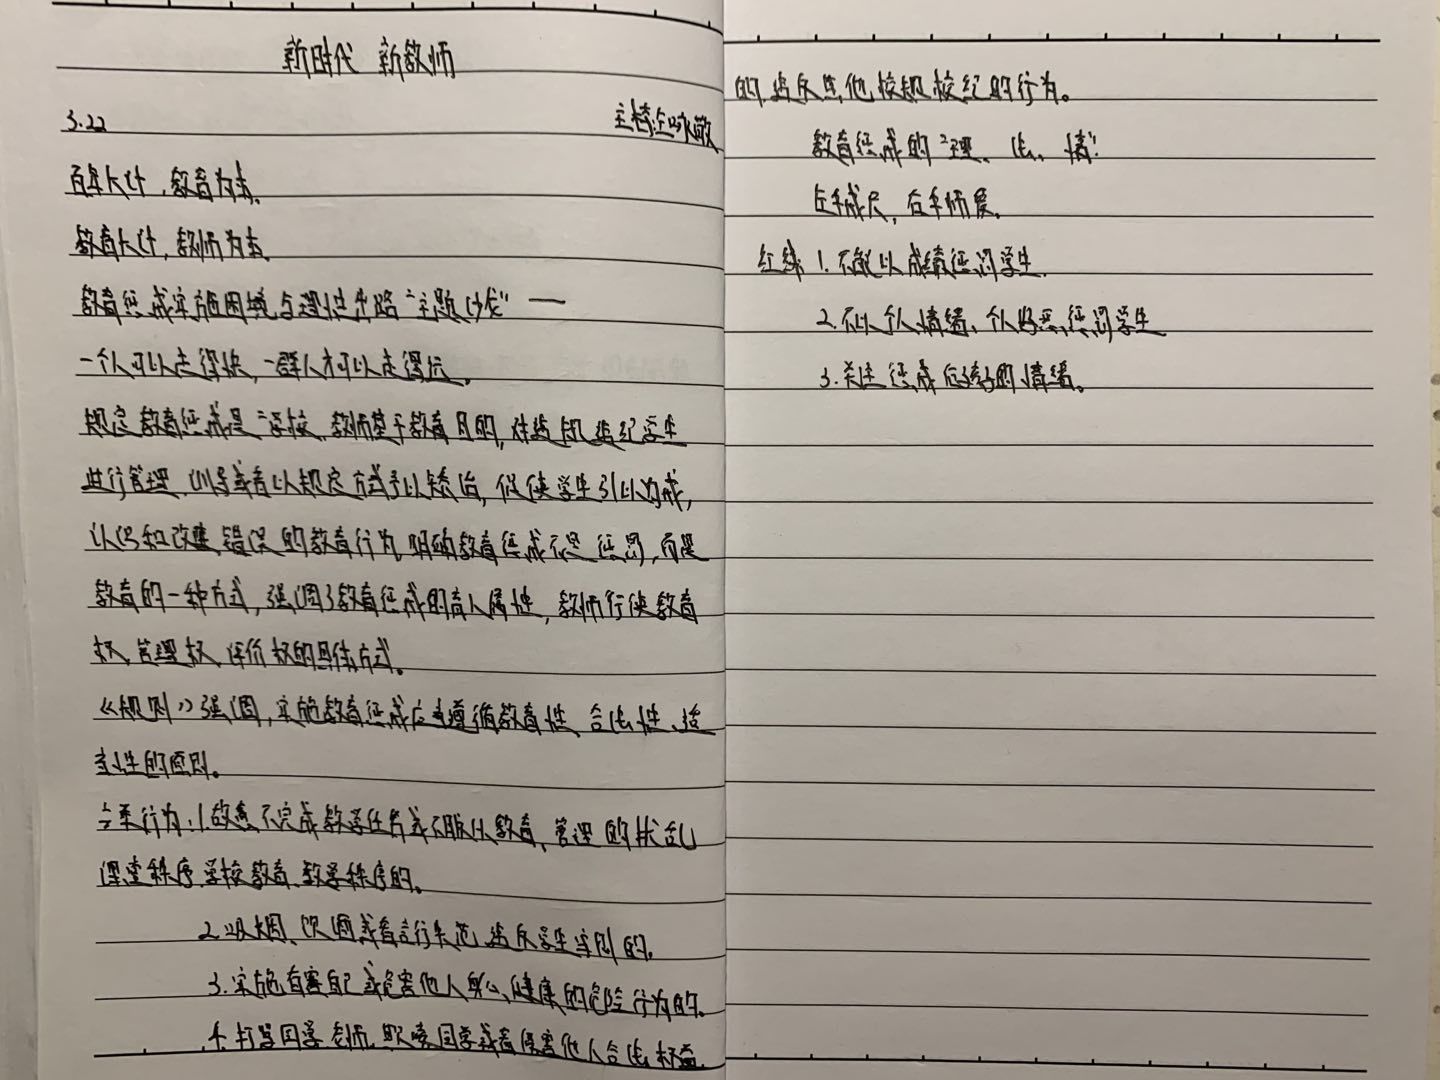 新时代 新教师
3.22 主持:
百年大计，教育为本。
教育大计，教师为本。
教育惩戒实施困境与理性出路“主题沙龙”——
一个人可以走得快，一群人才可以走得远。
规定教育惩戒是“学校、教师基于教育目的，对违规违纪学生
进行管理、训导或者以规定方式予以矫治，促使学生引以为戒，
认识和改正错误的教育行为，明确教育惩戒不是惩罚，而是
教育的一种方式，强调了教育惩戒的育人属性，教师行使教育
权、管理权、评价权的具体方式。
《规则》强调，实施教育惩戒应当遵循教育性、合法性、适
当性的原则。
六条行为:1.故意不完成教学任务或不服从教育、管理的扰乱
课堂秩序、学校教育、教学秩序的。
2.吸烟、饮酒或者言行失范违反学生守则的。
3.实施有害自己或危害他人身心健康的危险行为的。
4.打骂同学、老师，欺凌同学或者侵害他人合法权益
的，违反其他校规校纪的行为。
教育惩戒的“理、法、情”
左手戒尺，右手师爱。
红线 1.不能以成绩惩罚学生.
2.不以个人情绪、个人好恶惩罚学生
3.关注惩戒后孩子的情绪。